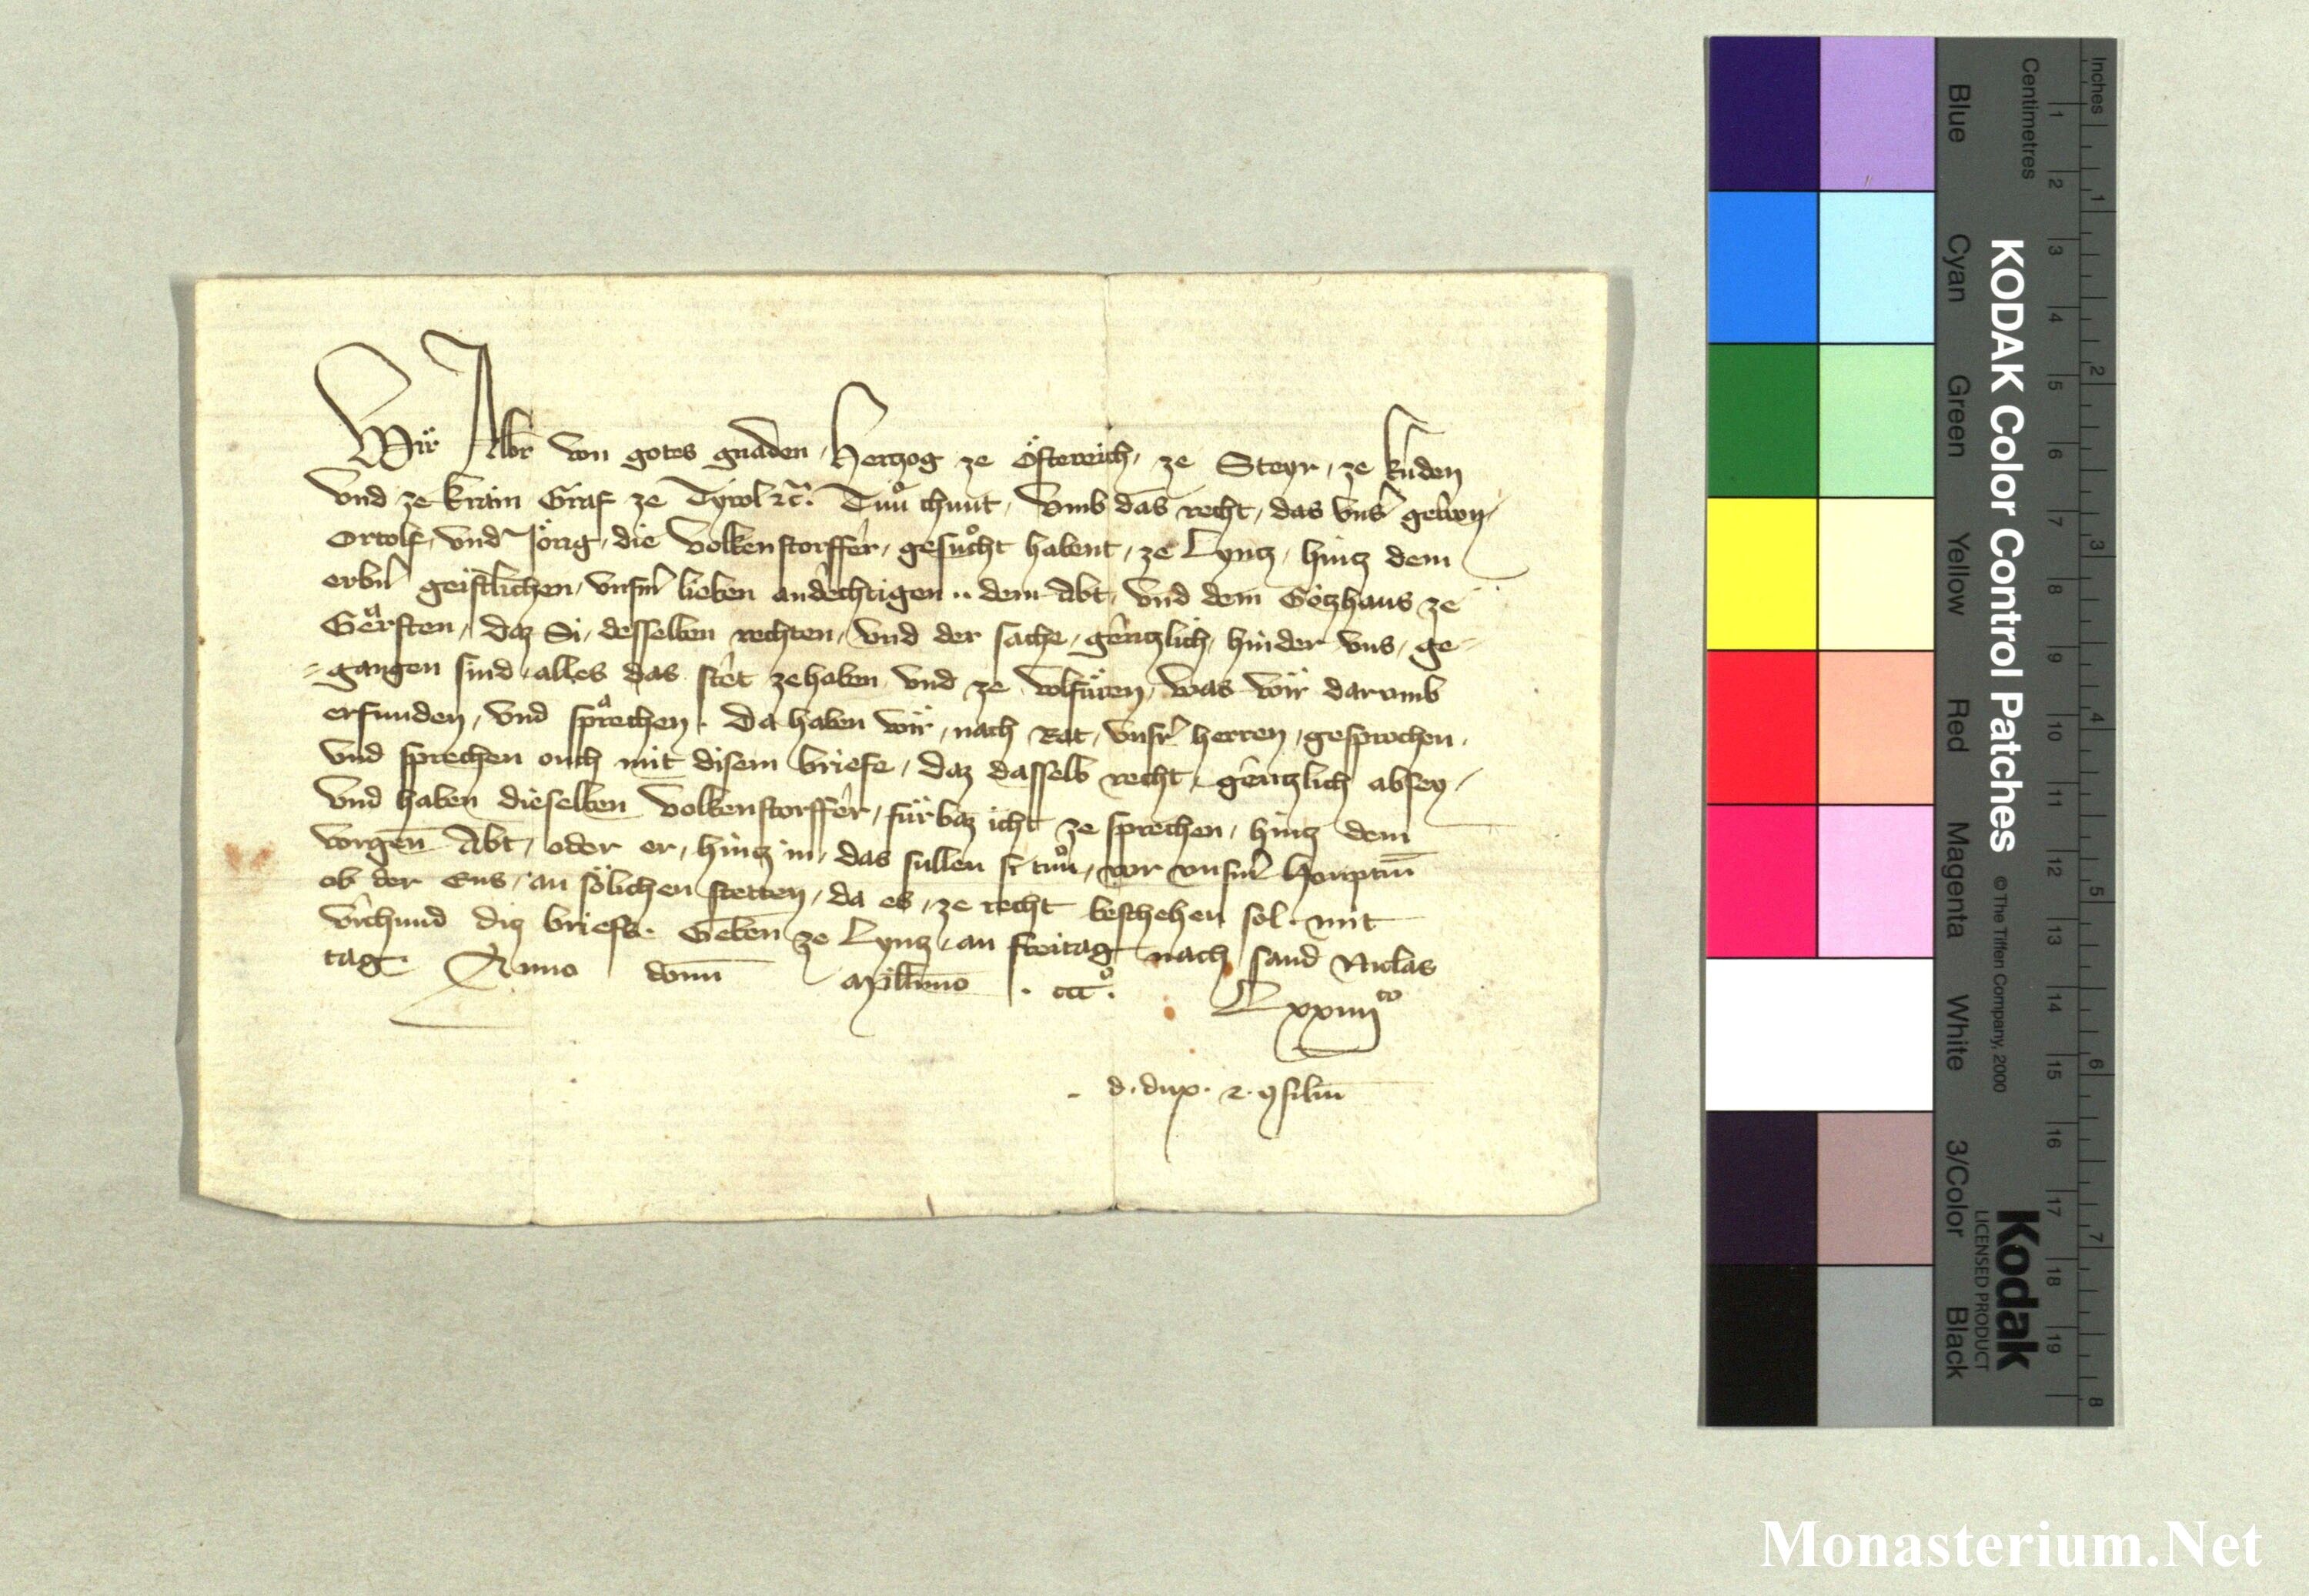 Wir Albr von gotes gnaden, Hertzog ze Österreich, ze Steyr, ze kernden
vnd ze krain Graf ze Tyrol etc. Tůn chunt, vmb das recht, das vnsͤr getrewn,
Ortolf, vnd Jörig, die Volkenstorffer, gesůcht habent, ze Lyntz, hintz dem
erbern geistlichen, vnserm lieben andechtigen .. dem Abt, vnd dem Gotzhaus ze
Gersten, daz Si, desselben rechten, vnd der sache, gentzlich, hinder vns, ge-
-gangen sind, alles das stet ze haben vnd ze volfüren, was wir darumb
erfunden, vnd sprechen. Da haben wir, nach Rat, vnsrer herren, gesprochen,
vnd sprechen ouch mit disem briefe, daz dasselb recht, gentzlich absey,
vnd haben dieselben Volkenstorffer, fürbaz icht ze sprechen, hintz dem
vorgen Abt, oder er, hintz in, das sullen si tůn, vor vnserm Houptm
ob der Ens, an sölichen stetten, da es, ze recht beschehen sol. mit
vrchund ditz briefs. Geben ze Lyntz, an freitag nach sand Niclas
tag. Anno domi Millimo . ccc.o Lxxiiii to
d. dux. et. consilium
Inches
Centimetres
Blue
Cyan
Green
Yellow
Red
Magenta
White
3/Color
Black
KODAK Color Control Patches © The Tiffen Company, 2000
Kodak
LICENSED PRODUCT
1 2 3 4 5 6 7 8 9 10 11 12 13 14 15 16 17 18 19
1 2 3 4 5 6 7 8
Monasterium.Net